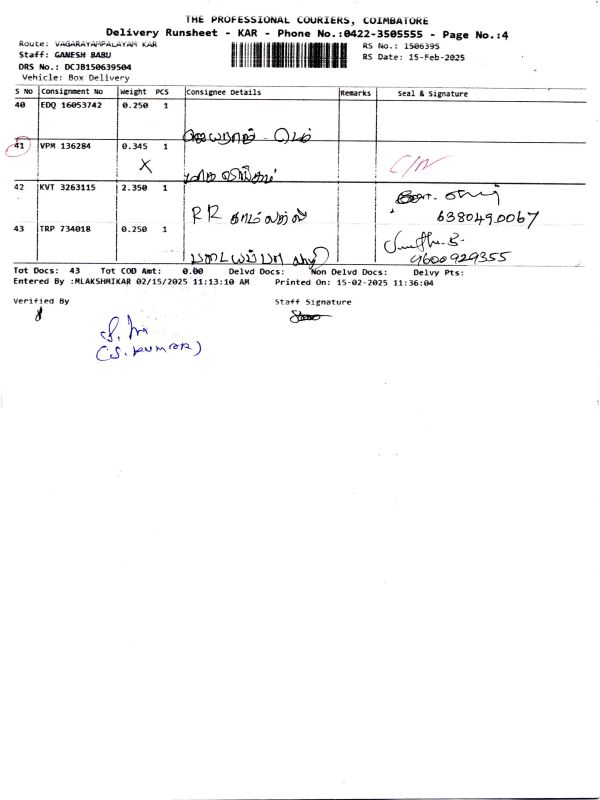 THE PROFESSIONAL COURIERS, COIMBATORE
Delivery Runsheet - KAR - Phone No.:0422-3505555 - Page No.:4
Route: VAGARAYAMPALAYAM KAR
RS No.: 1506395
Staff: GANESH BABU
RS Date: 15-Feb-2025
DRS No.: DCJB150639504
Vehicle: Box Delivery
S No Consignment No Weight PCS Consignee Details Remarks Seal & Signature
40 EDQ 16053742 0.250 1
41 VPM 136284 0.345 1
X C/N
42 KVT 3263115 2.350 1
RR 6380490067
43 TRP 734018 0.250 1
9600929355
Tot Docs: 43 Tot COD Amt: 0.00 Delvd Docs: Non Delvd Docs: Delvy Pts:
Entered By :MLAKSHMIKAR 02/15/2025 11:13:10 AM Printed On: 15-02-2025 11:36:04
Verified By Staff Signature
(S. KUMAR)